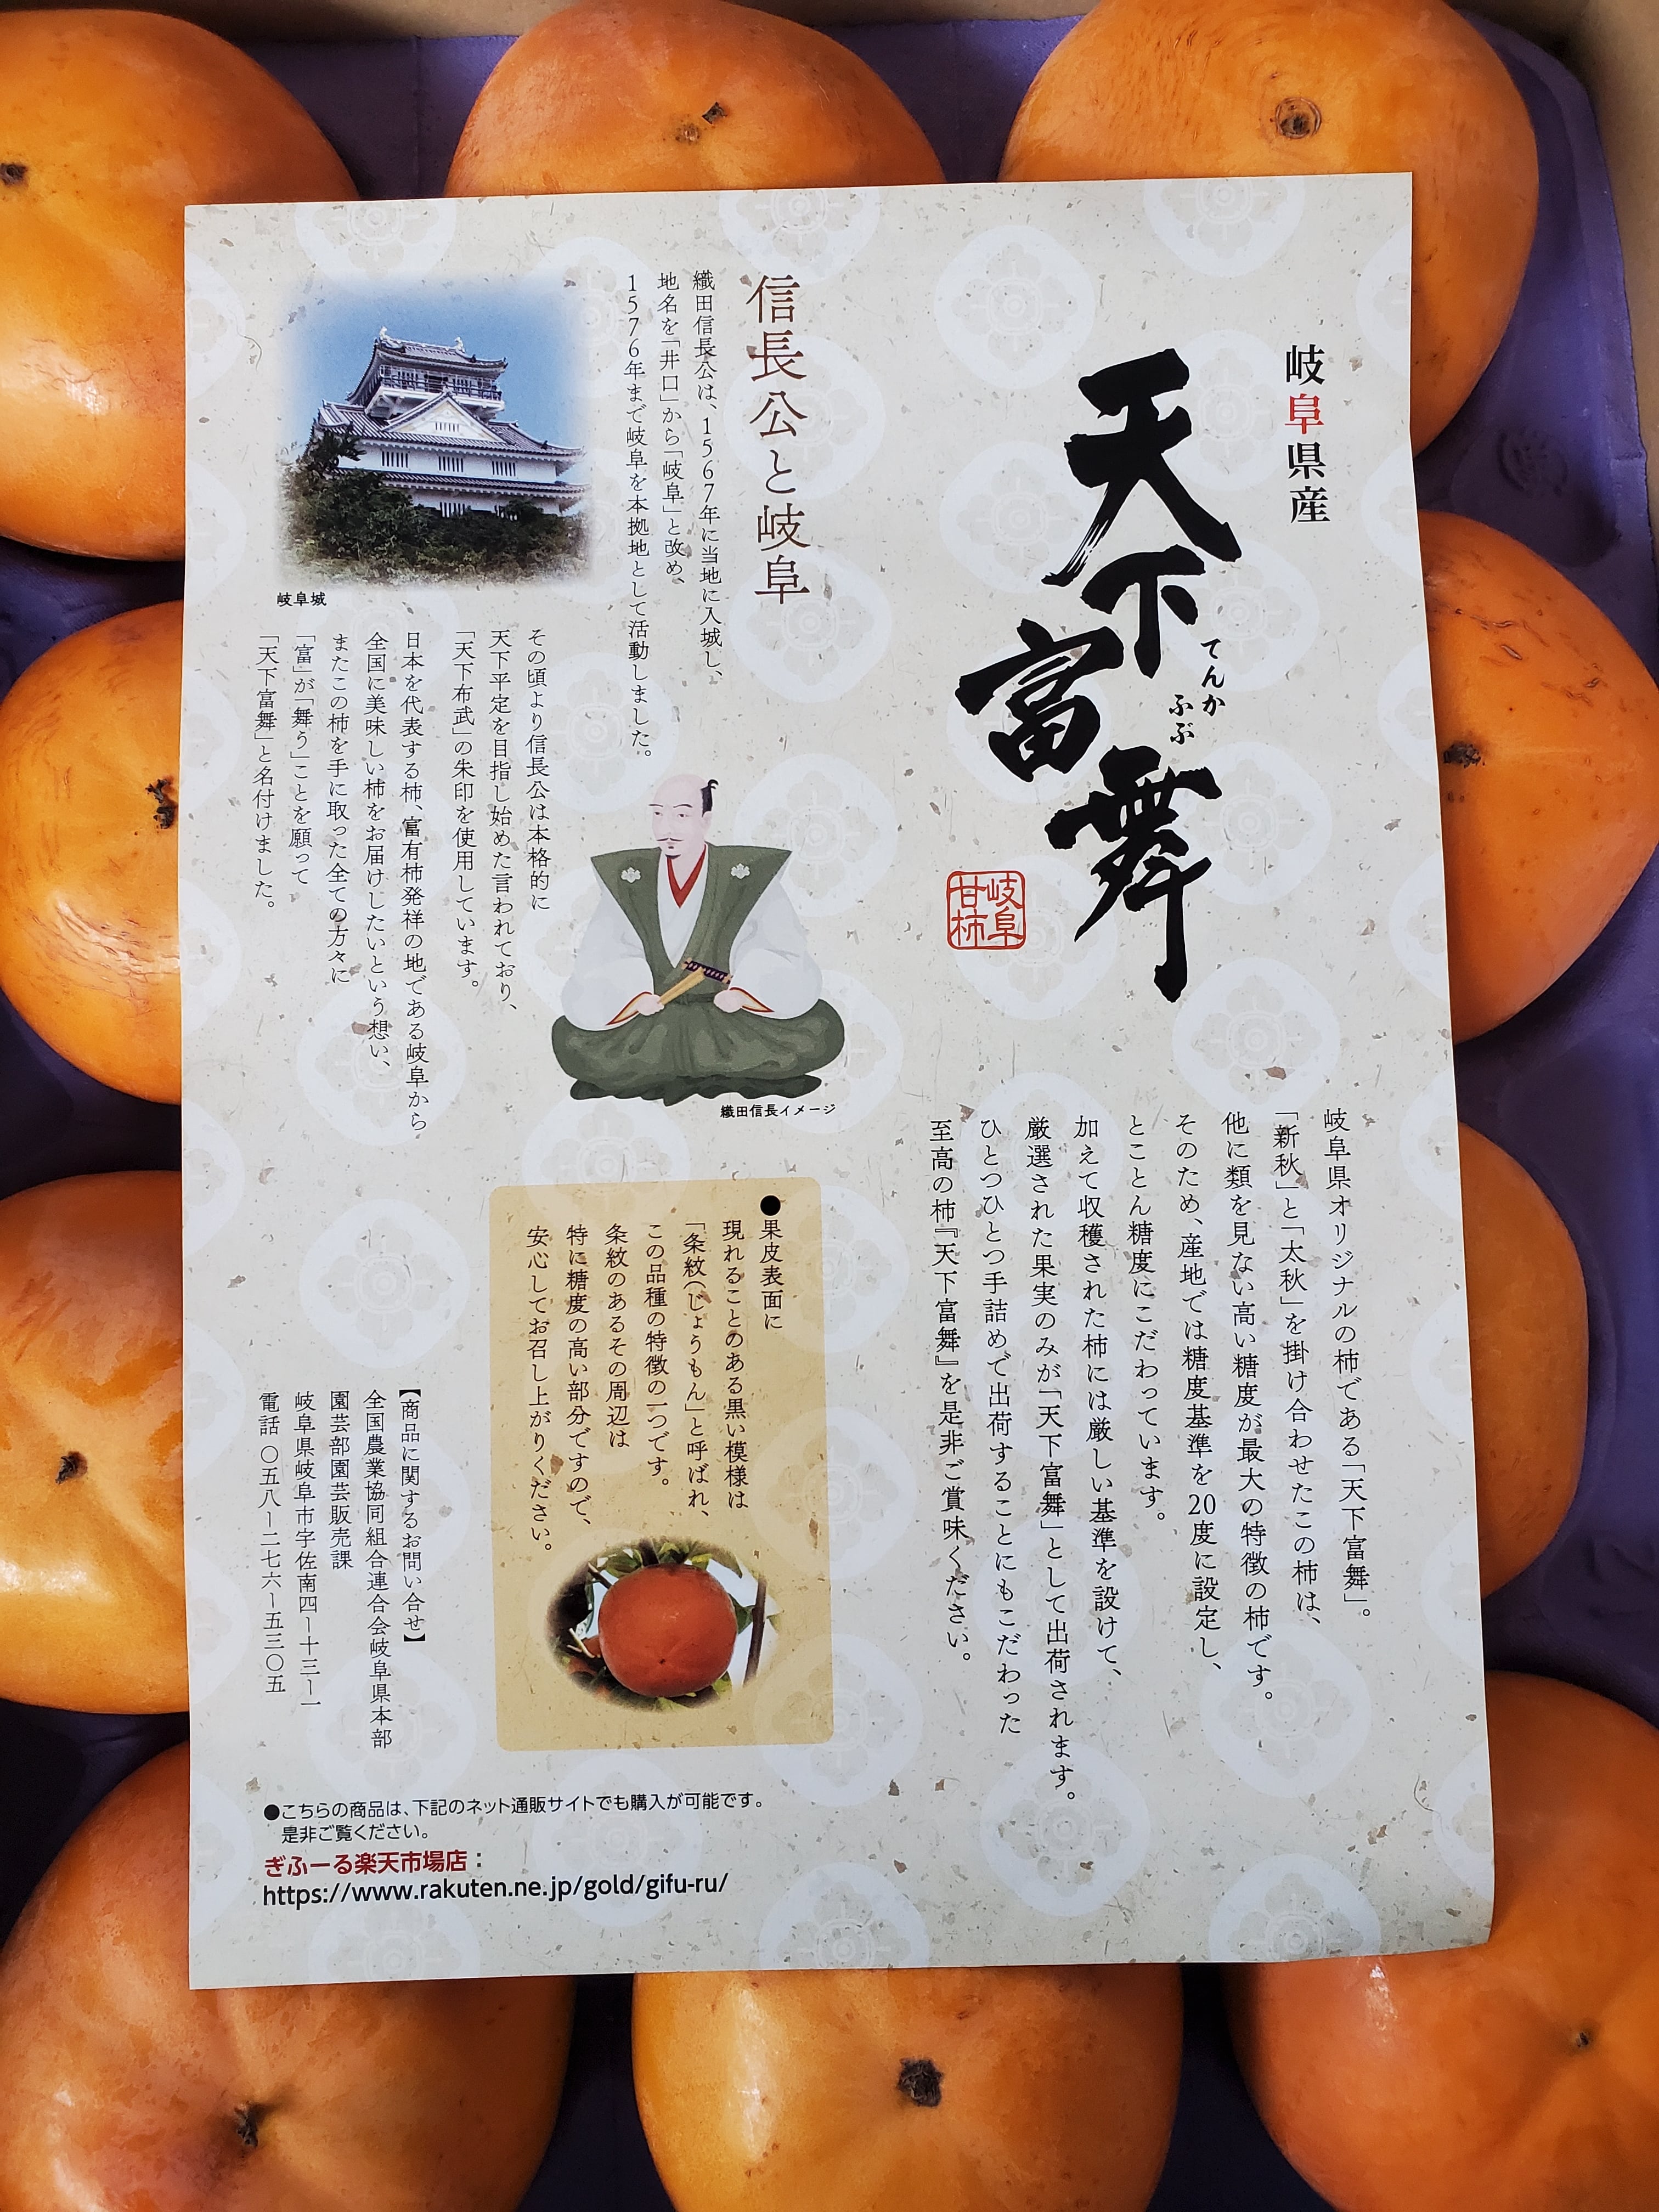 岐阜県産
天下富舞
てんか
ふぶ
岐阜
甘柿
岐阜県オリジナルの柿である「天下富舞」。
「新秋」と「太秋」を掛け合わせたこの柿は、
他に類を見ない高い糖度が最大の特徴の柿です。
そのため、産地では糖度基準を20度に設定し、
とことん糖度にこだわっています。
加えて収穫された柿には厳しい基準を設けて、
厳選された果実のみが「天下富舞」として出荷されます。
ひとつひとつ手詰めで出荷することにもこだわった
至高の柿『天下富舞』を是非ご賞味ください。
信長公と岐阜
織田信長公は、1567年に当地に入城し、
地名を「井口」から「岐阜」と改め、
1576年まで岐阜を本拠地として活動しました。
岐阜城
その頃より信長公は本格的に
天下平定を目指し始めた言われており、
「天下布武」の朱印を使用しています。
日本を代表する柿、富有柿発祥の地である岐阜から
全国に美味しい柿をお届けしたいという想い、
またこの柿を手に取った全ての方々に
「富」が「舞う」ことを願って
「天下富舞」と名付けました。
織田信長イメージ
●果皮表面に
現れることのある黒い模様は
「条紋(じょうもん)」と呼ばれ、
この品種の特徴の一つです。
条紋のあるその周辺は
特に糖度の高い部分ですので、
安心してお召し上がりください。
【商品に関するお問い合せ】
全国農業協同組合連合会岐阜県本部
園芸部園芸販売課
岐阜県岐阜市宇佐南四ー十三ー一
電話 〇五八ー二七六ー五三〇五
●こちらの商品は、下記のネット通販サイトでも購入が可能です。
是非ご覧ください。
ぎふーる楽天市場店：
https://www.rakuten.ne.jp/gold/gifu-ru/